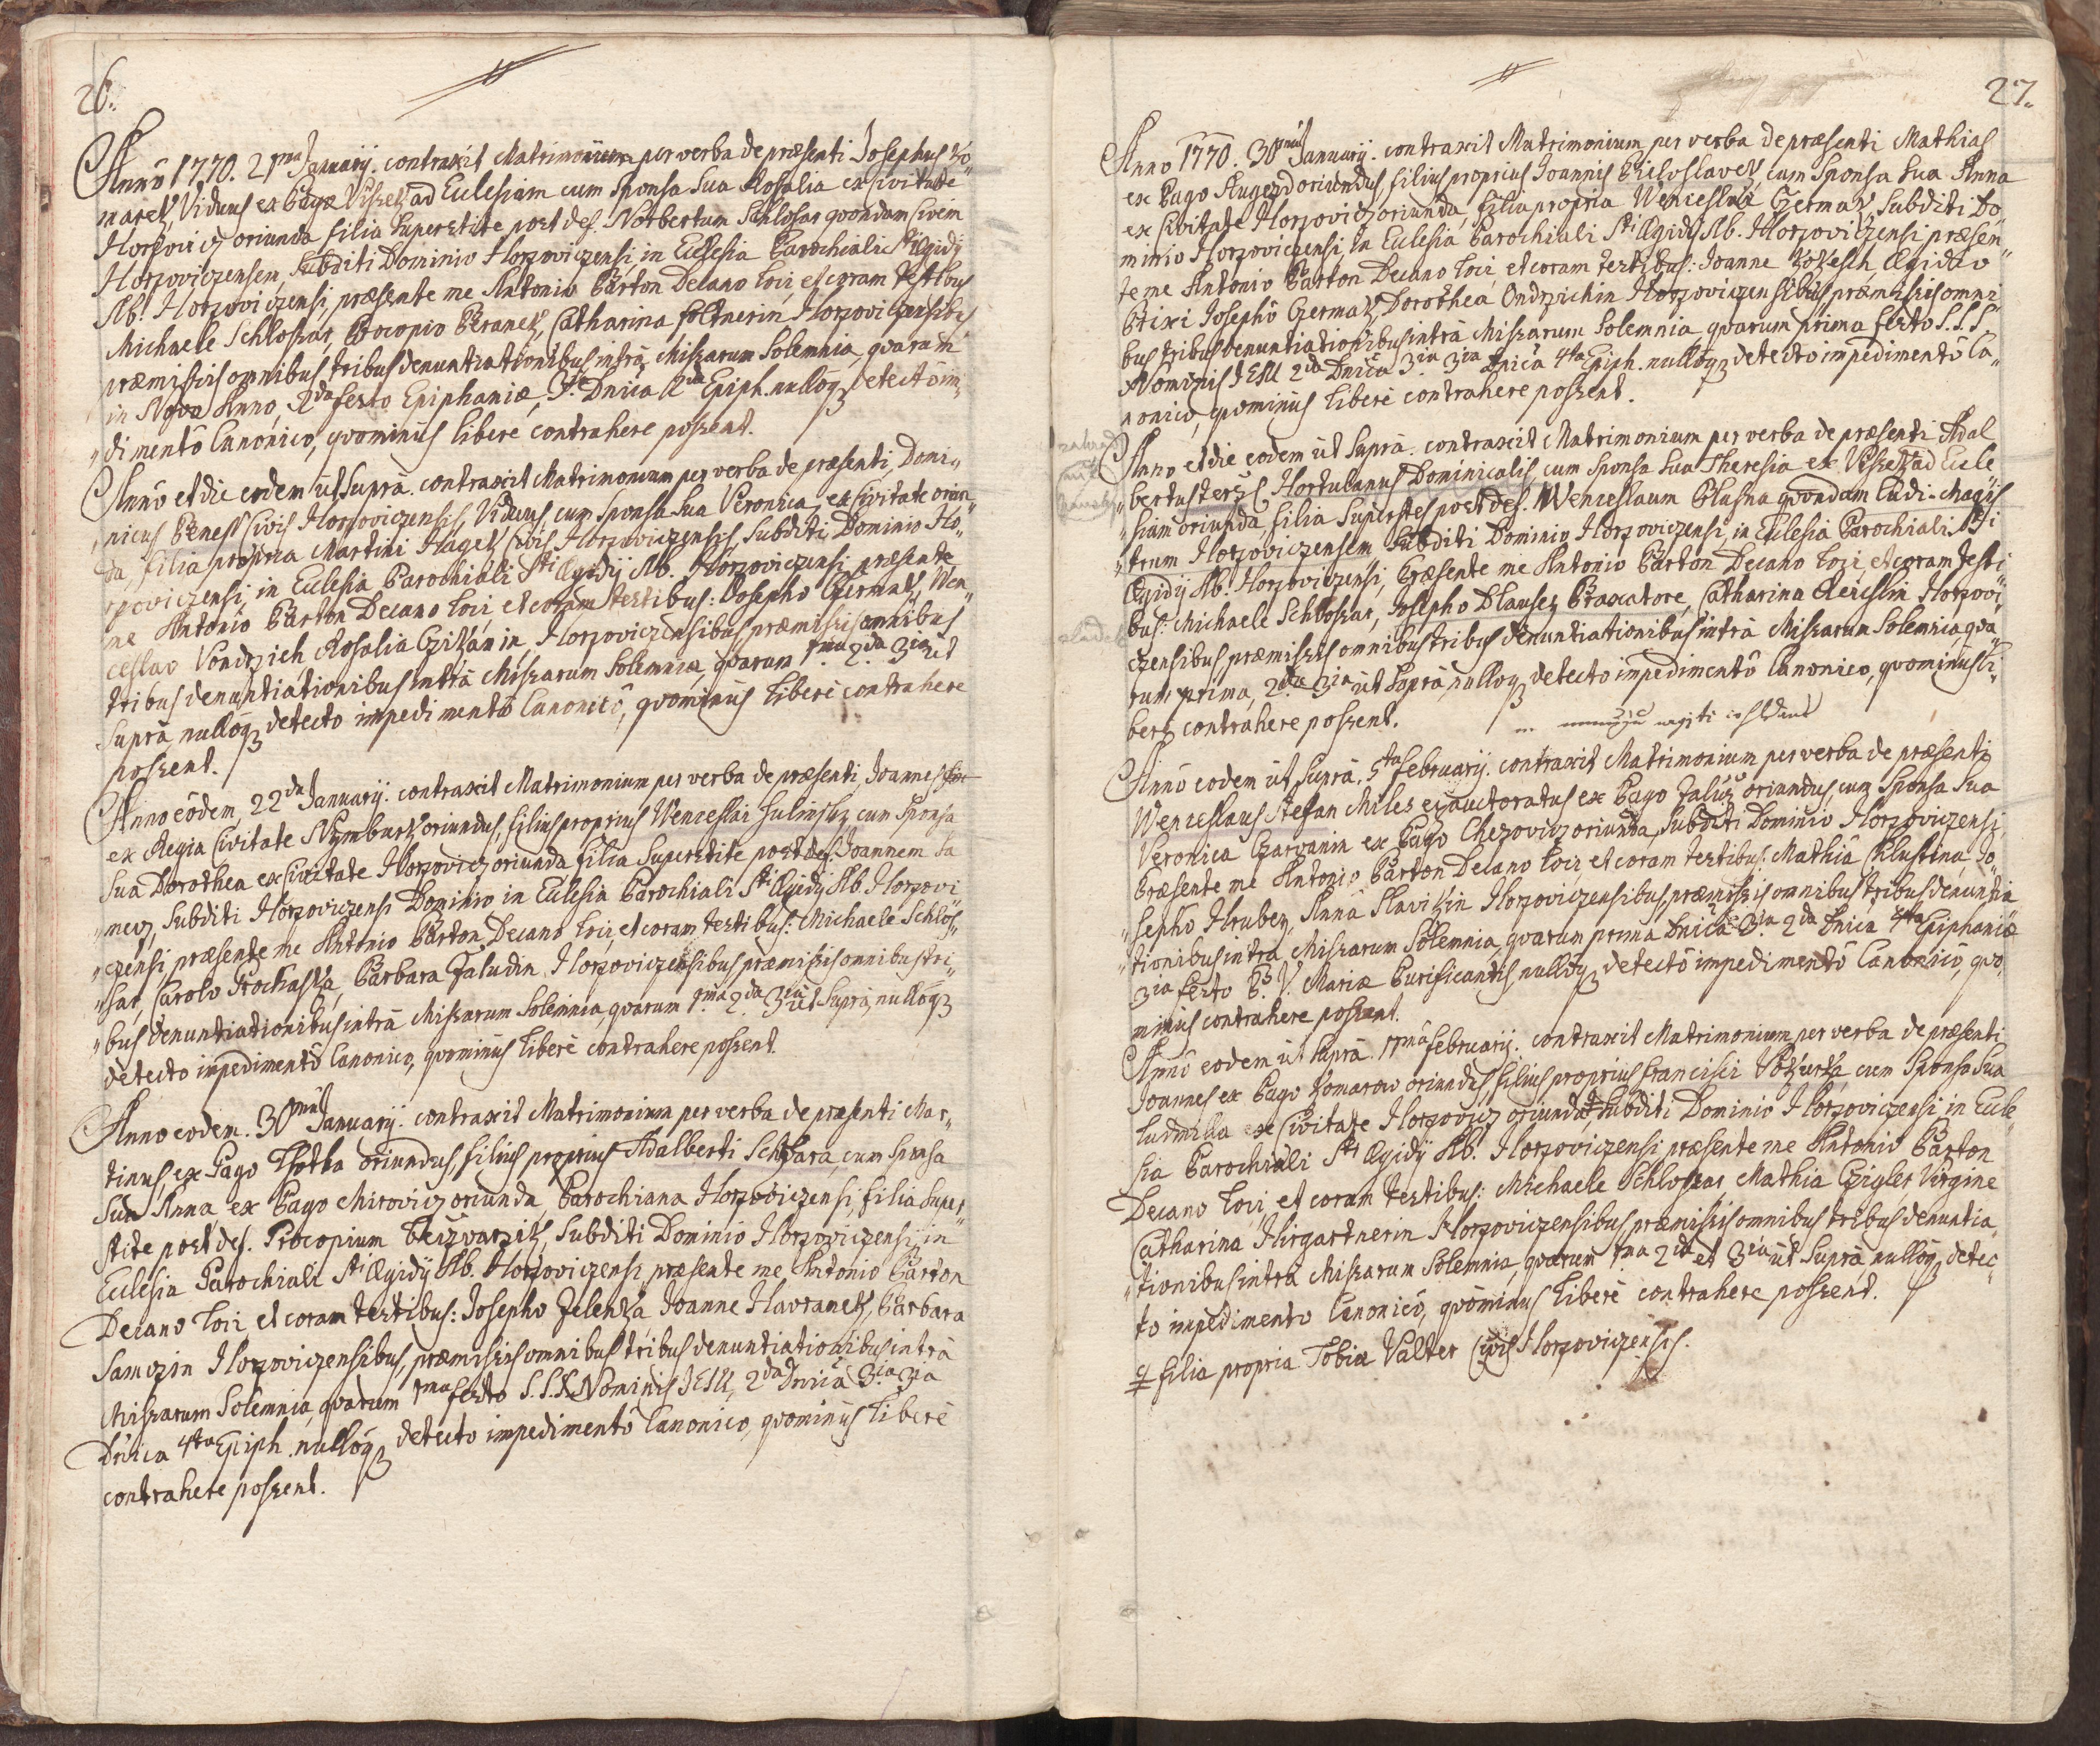 26.
Anno 1770. 21ma Januarij. contraxit Matrimonium per verba de præsenti Josephus Ko„
marek, Viduus ex Pago Viszek ad Ecclesiam cum Sponsa Sua Rosalia ex Civitate
Horzovicz oriunda filia Superstite post def. Norbertum Schlosar quondam Civem
Horzoviczensem, Subditi Dominio Horzoviczensi, in Ecclesia Parochiali Sti Ægidij
Ab. Horzoviczensi, præsente me Antonio Barton Decano Loci, et coram testibus
Michaele Schloszar, Procopio Beranek, Catharina Foltnerin Horzoviczensibus
præmissis omnibus tribus denuntiationibus intra Missarum Solemnia, quarum
in Novo Anno, 2da festo Epiphaniæ, 3tia Dnica 2da Epiph. nulloq detecto im„
„dimento Canonico, quominus libere contrahere possent.
Anno et die eodem ut Supra. contraxit Matrimonium per verba de præsenti, Domi„
„nicus Beness Civis Horzoviczensis, Viduus, cum Sponsa Sua Veronica, ex Civitate oriun„
da, filia propria Martini Hagek Civis Horzoviczensis, Subditi Dominio Ho„
rzoviczensi, in Ecclesia Parochiali Sti Ægidij Ab. Horzoviczensi, præsente
me Antonio Barton Decano Loci, et coram testibus: Josepho Czermak, Wen„
ceslao Vondrzich Rosalia Czizkanin, Horzoviczensibus præmissis omnibus
tribus denuntiationibus intra Missarum Solemnia, quarum 1ma 2da 3tia ut
Supra, nulloq detecto impedimento Canonico, quominus libere contrahere
possent.
Anno eodem, 22da Januarij. contraxit Matrimonium per verba de præsenti, Joannes
ex Regia Civitate Nymburk oriundus, filius proprius Wenceslai Hulinsky cum Sponsa
Sua Dorothea ex Civitate Horzovicz oriunda filia Superstite post def. Joannem Sa
„mecz, Subditi Horzoviczensi Dominio in Ecclesia Parochiali Sti Ægidij Ab. Horzovi„
„czensi, præsente me Antonio Barton Decano Loci, et coram testibus: Michaele Schlos„
„sar, Carolo Prochaska, Barbara Zaludin Horzoviczensibus præmissis omnibus tri„
„bus denuntiationibus intra Missarum Solemnia, quarum 1ma 2da 3tia ut Supra, nulloq
detecto impedimento Canonico, quominus libere contrahere possent.
Anno eodem. 30ma Januarij. contraxit Matrimonium per verba de præsenti Mar„
tinus, ex Pago Lhotka oriundus, filius proprius Adalberti Schkara, cum Sponsa
Sua Anna, ex Pago Mirovicz oriunda, Parochiana Horzoviczensi, filia Super„
stite post def. Procopium Bezvarzik, Subditi Dominio Horzoviczensi, in
Ecclesia Parochiali Sti Ægidij Ab. Horzoviczensi, præsente me Antonio Barton
Decano Loci, et coram testibus: Josepho Zelenka Joanne Havranek, Barbara
Samczin Horzoviczensibus, præmissis omnibus tribus denuntiationibus intra
Missarum Solemnia, quarum 1ma festo S.S. Nominis JESU, 2da Dnica 3tia 3tia
Dnica 4ta Epiph. nulloq detecto impedimento Canonico, quominus libere
contrahere possent.
27.
Anno 1770. 30ma Januarij. contraxit Matrimonium per verba de præsenti Mathias
ex Pago Augezd oriundus, filius proprius Joannis Bieloslavek, cum Sponsa Sua Anna
ex Civitate Horzovicz oriunda, filia propria Wenceslai Czermak, Subditi Do„
minio Horzoviczensi, In Ecclesia Parochiali Sti Ægidij Ab. Horzoviczensi præsen„
te me Antonio Barton Decano Loci, et coram testibus: Joanne Kokesch, Ægidio
Brixi Josepho Czermak, Dorothea Ondrzichin Horzoviczensibus præmissis omni„
bus tribus denuntiationibus intra Missarum Solemnia quarum prima festo S.S.S.
Nominis JESU 2da Dnica 3tia 3tia Dnica 4ta Epiph. nulloq detecto impedimento Ca„
nonico, quominus libere contrahere possent.
Anno et die eodem ut Supra. contraxit Matrimonium per verba de præsenti Adal
„bertus Hortulanus Dominicalis, cum Sponsa Sua Theresia ex Viszek ad Eccle
„siam oriunda, filia Superstes post def. Wenceslaum Blasna quondam Ludi-Magis
„trum Horzoviczensem Subditi Dominio Horzoviczensi, in Ecclesia Parochiali Sti
Ægidij Ab. Horzoviczensi, Præsente me Antonio Barton Decano Loci, et coram testi
bus: Michaele Schloszar, Josepho Dlauhy Braxatore, Catharina Horzovi„
czensibus præmissis omnibus tribus denuntiationibus intra Missarum Solemnia qua„
rum prima, 2da 3tia ut Supra, nulloq detecto impedimento Canonico, quominus li„
bere contrahere possent.
Anno eodem ut Supra. 5ta Februarij. contraxit Matrimonium per verba de præsenti
Wenceslaus Stefan Miles exauctoratus ex Pago Zaluz oriundus, cum Sponsa Sua
Veronica Czarvanin ex Pago Chezovicz oriunda, Subditi Dominio Horzoviczensi,
Præsente me Antonio Barton Decano Loci, et coram testibus: Mathia Chlustina, Jo„
„sepho Hruby, Anna Slavikin Horzoviczensibus, præmissis omnibus tribus denuntia
„tionibus intra Missarum Solemnia, quarum prima Dnica 3tia 2da Dnica 4ta Epiphaniæ
3tia festo B. V. Mariæ Purificantis, nulloq detecto impedimento Canonico, quo
minus contrahere possent.
Anno eodem ut Supra. 11ma Februarij. contraxit Matrimonium per verba de præsenti
Joannes ex Pago Komarow oriundus filius proprius Francisci Vokurka cum Sponsa Sua
Ludmilla ex Civitate Horzovicz oriunda, Subditi Dominio Horzoviczensi, in Eccle„
sia Parochiali Sti Ægidij Ab. Horzoviczensi præsente me Antonio Barton
Decano Loci, et coram testibus: Michaele Schloszar Mathia Czigler, Virgine
Catharina Hirgartnerin Horzoviczensibus præmissis omnibus tribus denuntia„
„tionibus intra Missarum Solemnia, quarum 1ma 2da et 3tia ut Supra, nulloq detec„
to impedimento Canonico, quominus libere contrahere possent.
filia propria Tobiæ Valter Civis Horzoviczensis.